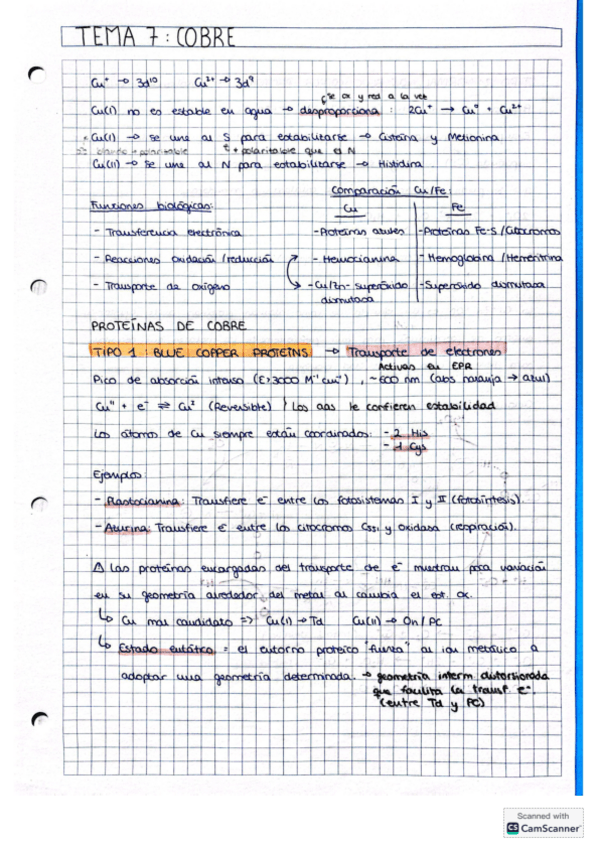 TEMA 7: COBRE
Cu⁺ → 3d¹⁰ Cu²⁺ → 3d⁹
se ox y red a la vez
Cu(I) no es estable en agua → desproporciona: 2Cu⁺ → Cu⁰ + Cu²⁺
Cu(I) → se une al S para estabilizarse → Cisteína y Metionina
blando + polarizable ↑ + polarizable que el N
Cu(II) → se une al N para estabilizarse → Histidina
Comparación Cu/Fe:
Funciones biológicas: Cu Fe
- Transferencia electrónica - Proteínas azules - Proteínas Fe-S / Citocromos
- Reacciones oxidación/reducción - Hemocianina - Hemoglobina / Hemeritrina
- Transporte de oxígeno - Cu/Zn- Superóxido - Superóxido dismutasa
dismutasa
PROTEÍNAS DE COBRE
TIPO 1: BLUE COPPER PROTEINS → Transporte de electrones
Activas en EPR
Pico de absorción intenso (ε>3000 M⁻¹cm⁻¹), ~600 nm (abs naranja → azul)
+ e⁻ ⇌ (Reversible) } Los aas le confieren estabilidad
Los átomos de Cu siempre están coordinados: - 2 His
- 1 Cys
Ejemplos
- Plastocianina: Transfiere e⁻ entre los fotosistemas I y II (fotosíntesis).
- Azurina: Transfiere e⁻ entre los citocromos C₅₅₁ y oxidasa (respiración).
△ Las proteínas encargadas del transporte de e⁻ muestran poca variación
en su geometría alrededor del metal al cambia el est. ox.
↳ Cu mal candidato => Cu(I) → Td Cu(II) → Oh / PC
↳ Estado entático = el entorno proteico "fuerza" al ion metálico a
adoptar una geometría determinada. → geometría interm distorsionada
que facilita la transf e⁻.
(entre Td y PC)
Scanned with
CS CamScanner